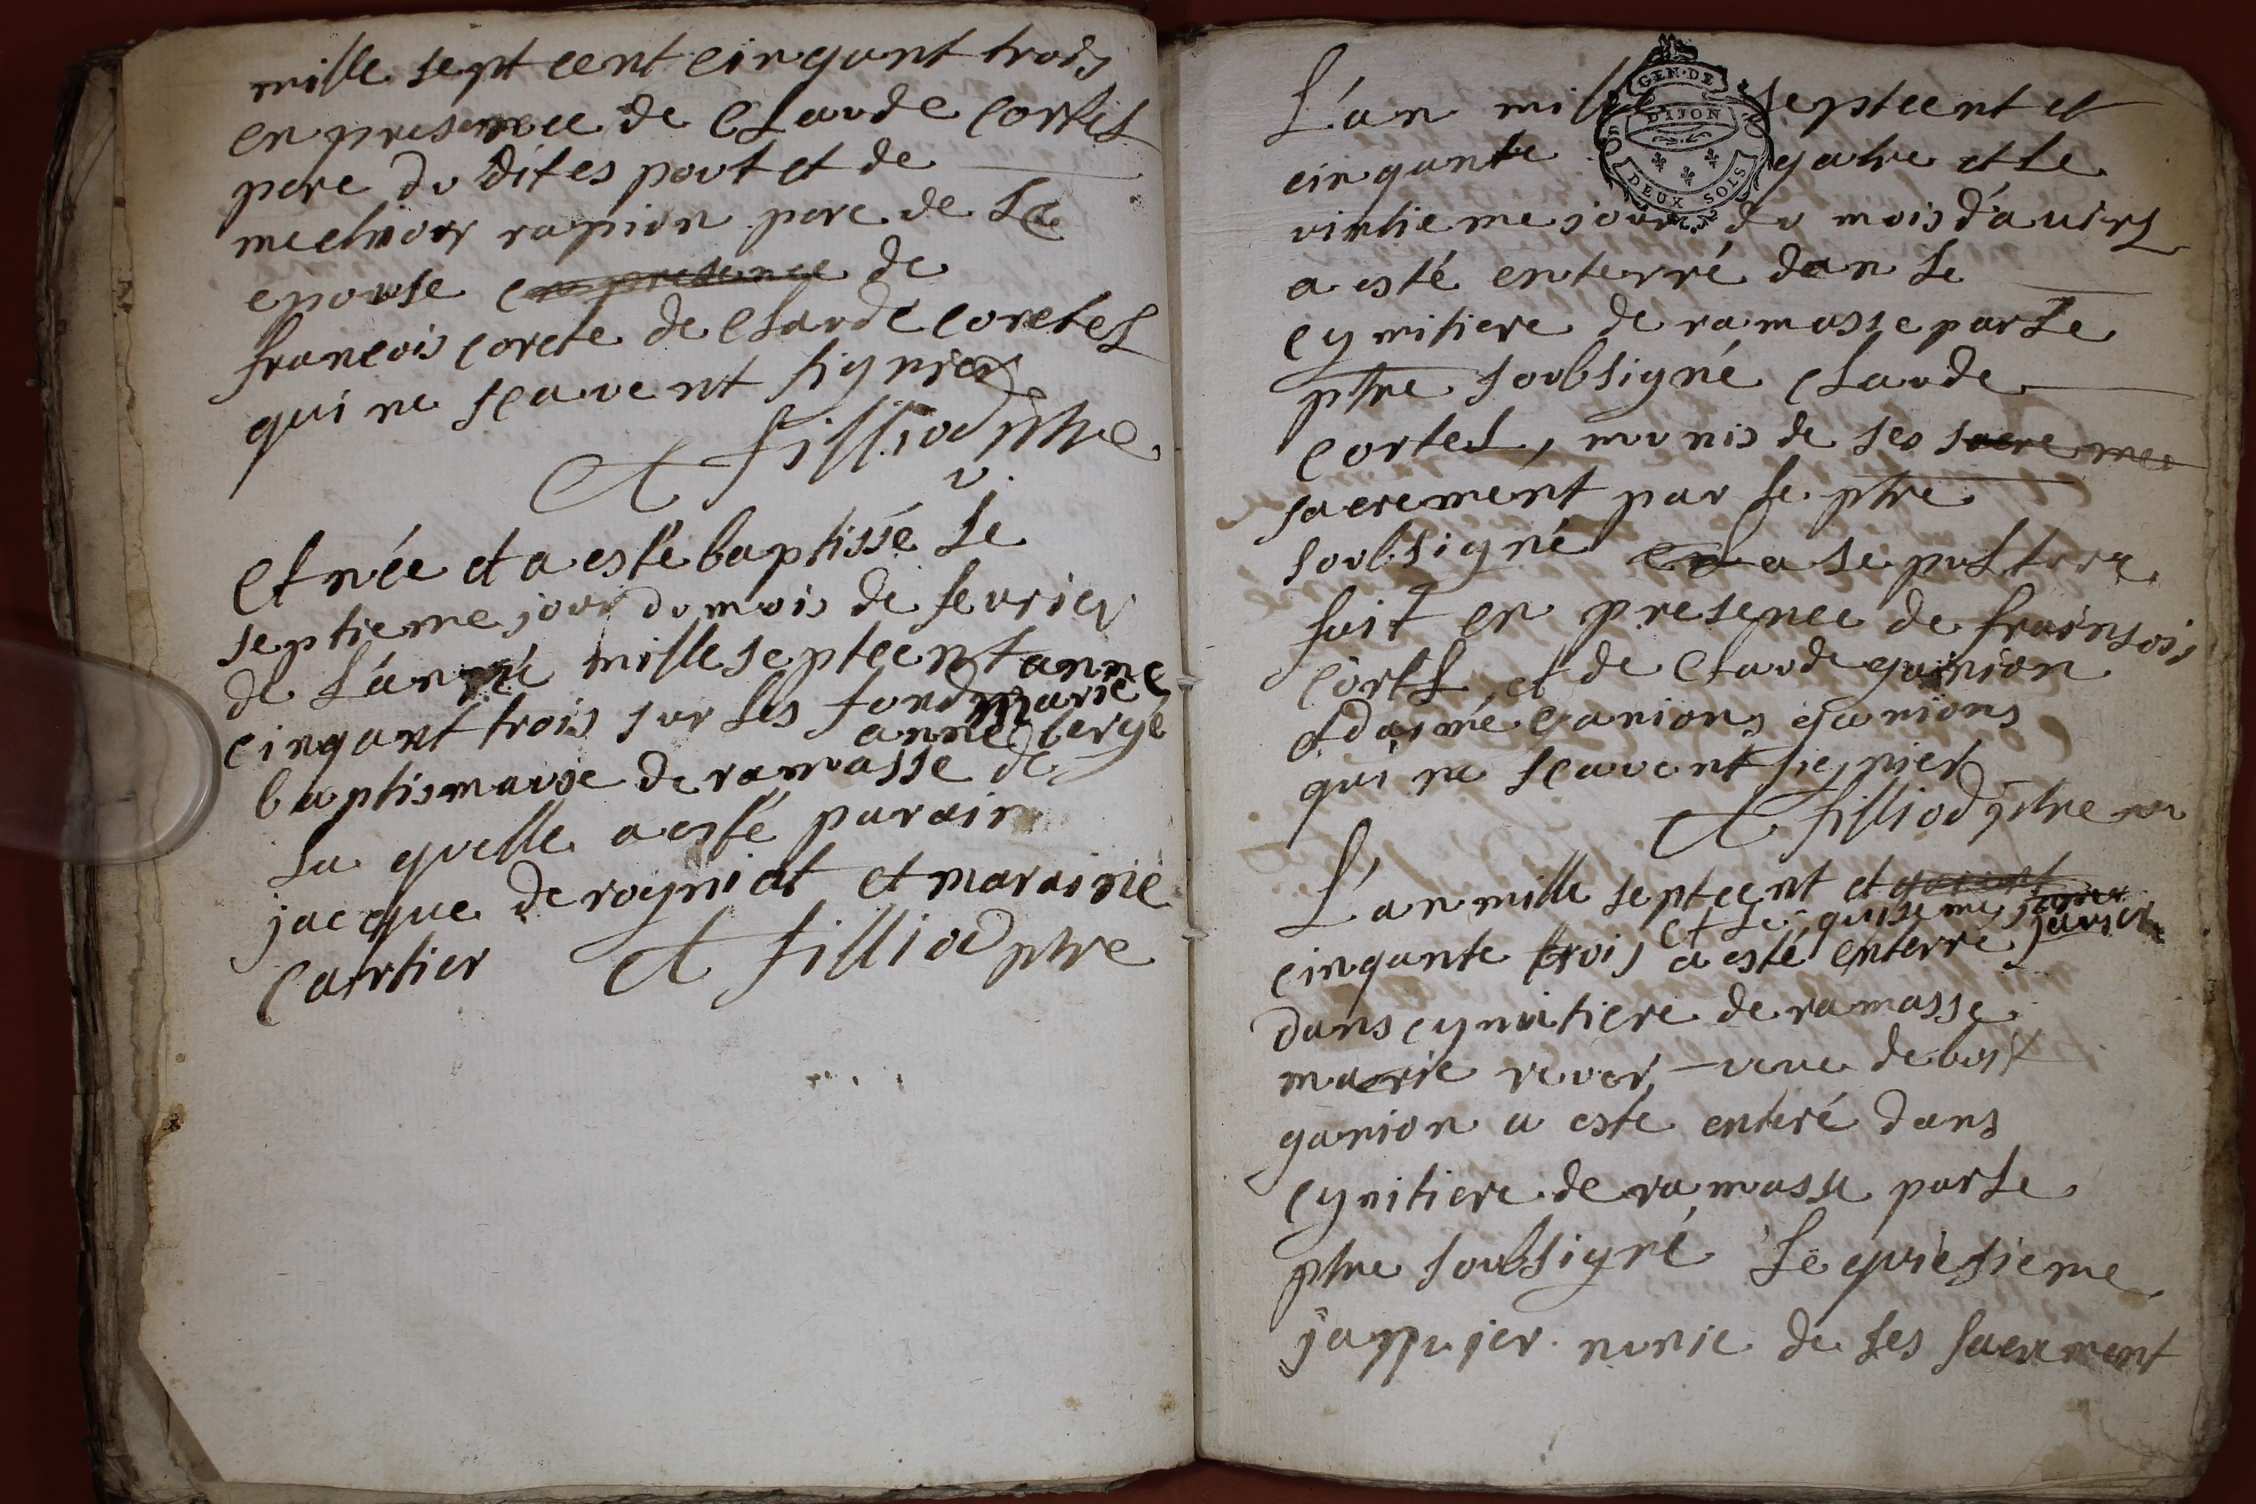 mille sept cent cinqant trois
en presence de Claude Cortet
pere du dit espout et de
melchior rapion pere de la
epouse en presence de
francois corete de Claude Coretel
qui ne scavent signier
A filliod ptre
v.
Et née et a esté baptissé le
septieme jour du mois de fevrier
de L'année mille septcent anne
cinqant trois sur les fond marie
anne bergé
baptismause de ramasse de
La quelle a esté parain
jacque de rogniat et maraine
Cartier A filliod ptre
L'an mille septcent et
cinqante qatre et le
vintieme jour du mois d'avirl
a esté enterré dan le
cymitiere de ramasse par Le
ptre soubsigné Claude
Cortel, munis de ses sacreme
sacrement par le ptre
soubsigné en a sepulture
fait en presence de frainsois
Cortl et de Claude qanion
et daimé qanions qanions
qui ne scavent signier
A filliod ptre
GEN. DE
DIJON
DEUX SOLS
L'an mille septcent et
et le quiseme janvier
cinqante trois a esté enterre
dans cymitiere de ramasse
marie revor veve de
qanion a esté enteré dans
cymitiere de ramasse par Le
ptre soubsigné Le quiesieme
munie de ses sacrement